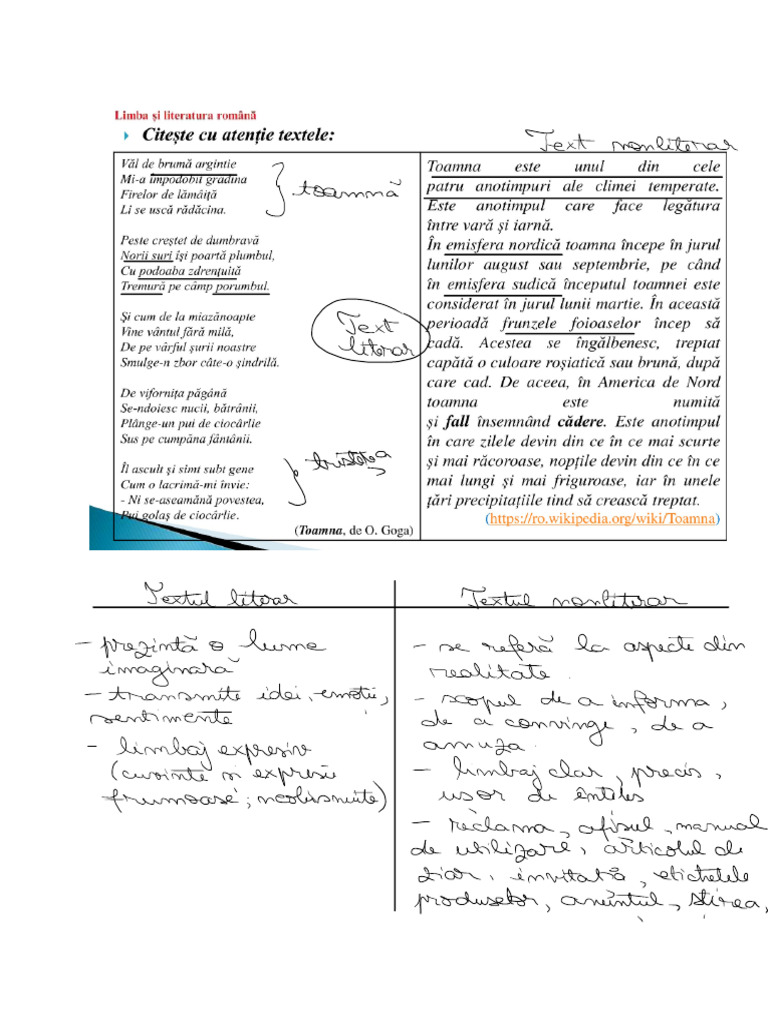 Limba și literatura română
Citește cu atenție textele:
Text nonliterar
Văl de brumă argintie
Mi-a împodobit grădina
Firelor de lămâiță
Li se uscă rădăcina.
toamnă
Peste creștet de dumbravă
Norii suri își poartă plumbul,
Cu podoaba zdrențuită
Tremură pe câmp porumbul.
Și cum de la miazănoapte
Vine vântul fără milă,
De pe vârful șurii noastre
Smulge-n zbor câte-o șindrilă.
Text
literar
De vifornița păgână
Se-ndoiesc nucii, bătrânii,
Plânge-un pui de ciocârlie
Sus pe cumpăna fântânii.
Îl ascult și simt subt gene
Cum o lacrimă-mi învie:
- Ni se-aseamănă povestea,
Pui golaș de ciocârlie.
tristețea
(Toamna, de O. Goga)
Toamna este unul din cele
patru anotimpuri ale climei temperate.
Este anotimpul care face legătura
între vară și iarnă.
În emisfera nordică toamna începe în jurul
lunilor august sau septembrie, pe când
în emisfera sudică începutul toamnei este
considerat în jurul lunii martie. În această
perioadă frunzele foioaselor încep să
cadă. Acestea se îngălbenesc, treptat
capătă o culoare roșiatică sau brună, după
care cad. De aceea, în America de Nord
toamna este numită
și fall însemnând cădere. Este anotimpul
în care zilele devin din ce în ce mai scurte
și mai răcoroase, nopțile devin din ce în ce
mai lungi și mai friguroase, iar în unele
țări precipitațiile tind să crească treptat.
(https://ro.wikipedia.org/wiki/Toamna)
Textul literar
- prezintă o lume
imaginară
- transmite idei, emoții,
sentimente
- limbaj expresiv
(cuvinte și expresii
frumoase; neobișnuite)
Textul nonliterar
- se referă la aspecte din
realitate.
- scopul de a informa,
de a convinge, de a
amuza.
- limbaj clar, precis,
ușor de înțeles
- reclama, afișul, manual
de utilizare, articolul de
ziar, invitată, etichetele
produselor, anunțul, știrea,